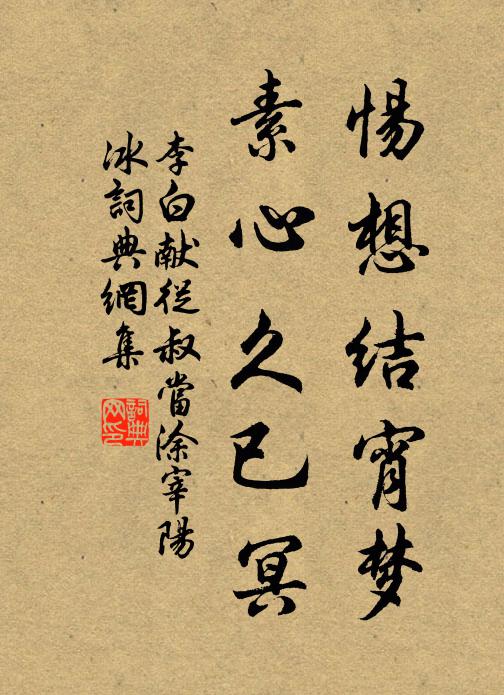 惕想结宵梦
素心久已冥
李白献從叔當涂宰陽
冰詞典網集
詞典
网印